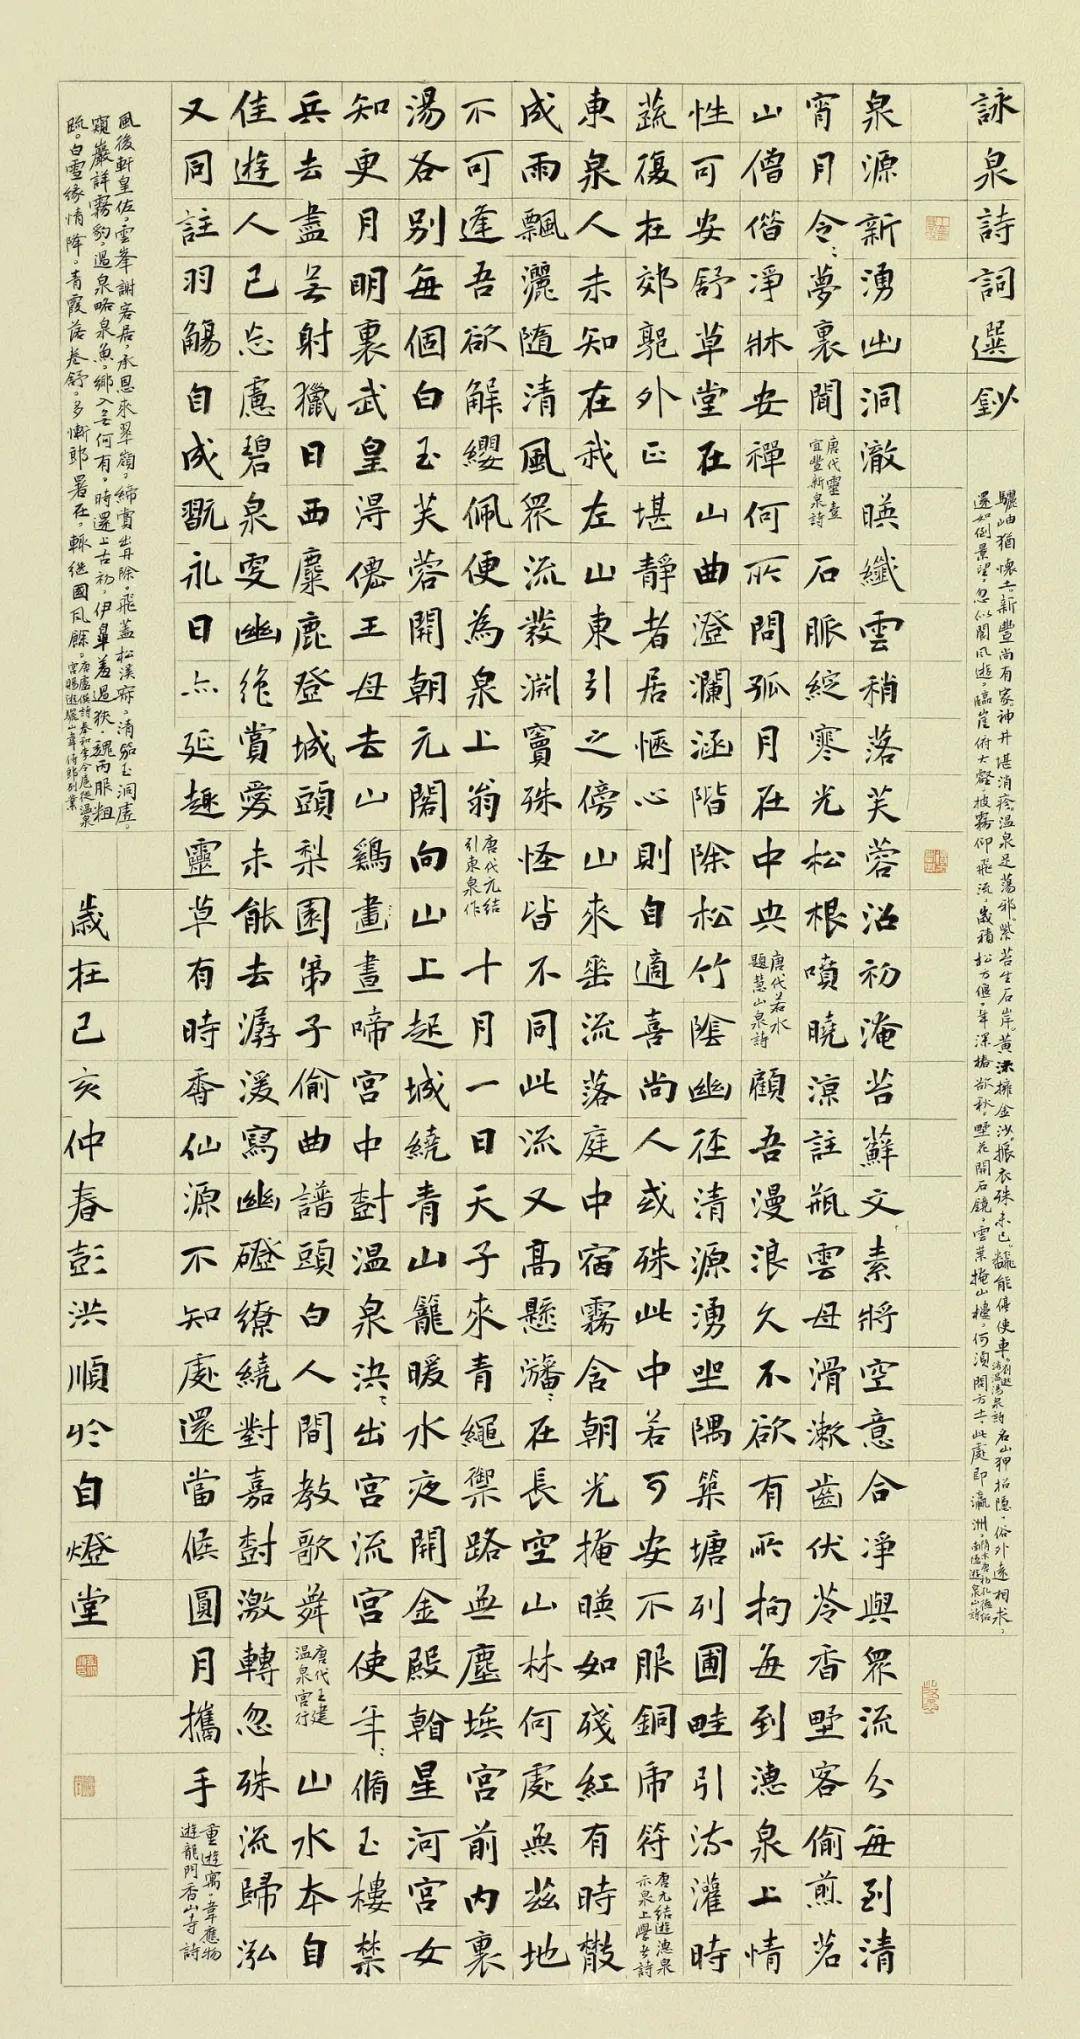 詠泉詩詞選鈔
驪岫猶懷土。新豐尚有家。神井堪消疹。溫泉足蕩邪。紫苔生石岸。黃沫擁金沙。振衣殊未已。翻能停使車。浴溫湯泉詩 名山狎招隱。俗外遠相求。
還如倒景望。忽似閬風遊。臨崖俯大壑。披霧仰飛流。歲積松方偃。年深椿欲秋。野花開石鏡。雲葉掩山樓。何須問方士。此處即瀛洲。隋末唐初孔德紹南隱遊泉山詩
泉源新湧出洞澈暎纖雲稍落芙蓉沼初淹苔蘚文素將空意合淨與眾流分每到清
宵月令〻夢裏聞 唐代靈壹宜豐新泉詩 石脈綻寒光松根噴曉涼註瓶雲母滑漱齒伏苓香野客偷煎茗
山僧偕淨牀安禪何所問孤月在中央 唐代若水題慧山泉詩 顧吾漫浪久不欲有所拘每到潓泉上情
性可安舒草堂在山曲澄瀾涵階除松竹陰幽徑清源湧坐隅築塘列圃畦引流灌時
蔬復在郊郭外正堪靜者居愜心則自適喜尚人或殊此中若可安不服銅虎符 唐元結遊潓泉示泉上學者詩
東泉人未知在我左山東引之傍山來垂流落庭中宿霧含朝光掩暎如殘紅有時散
成雨飄灑隨清風眾流發淵竇殊怪皆不同此流又高懸瀿〻在長空山林何處無茲地
不可逢吾欲解纓佩便為泉上翁 唐代元結引東泉作 十月一日天子來青繩禦路無塵埃宮前內裏
湯各別每個白玉芙蓉開朝元閣向山上起城繞青山籠暖水夜開金殿看星河宮女
知更月明裏武皇得僊王母去山鷄晝晝啼宮中樹溫泉決〻出宮流宮使年〻脩玉樓禁
兵去盡無射獵日西麋鹿登城頭梨園弟子偷曲譜頭白人間教歌舞 唐代王建溫泉宮行 山水本自
佳遊人已忘慮碧泉更幽絕賞愛未能去潺湲寫幽磴繚繞對嘉樹激轉忽殊流歸泓
又同註羽觴自成翫永日亦延趣靈草有時香仙源不知處還當候圓月攜手 重遊寓。韋應物遊龍門香山寺詩
風後軒皇佐。雲峯謝客居。承恩來翠嶺。締賞出丹除。飛蓋松溪寂。清笳玉洞虛。
窺巖詳霧豹。過泉略泉魚。鄉入無何有。時還上古初。伊臯羞過狹。魏丙服粗
疏。白雪緣情降。青霞落卷舒。多慚郎署在。輒繼國風餘。唐盧僎詩奉和李令扈從溫泉宮賜遊驪山韋侍郎別業
歲在己亥仲春彭洪順於自燈堂